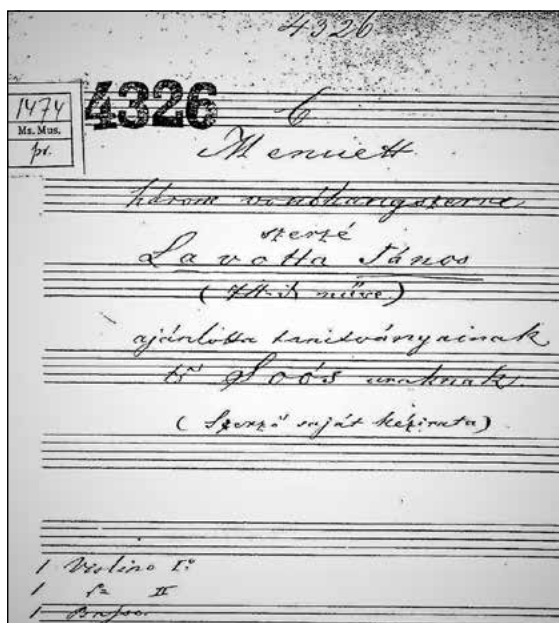 4326
1474
Ms. Mus.
pr.
4326
6
Menuett
három vonóhangszerre
szerzé
Lavotta János
(ik műve.)
ajánlotta tanitványainak
Soós uraknak.
(Szerző saját kézirata)
1 Violino I:o
1 II
1 Basso.